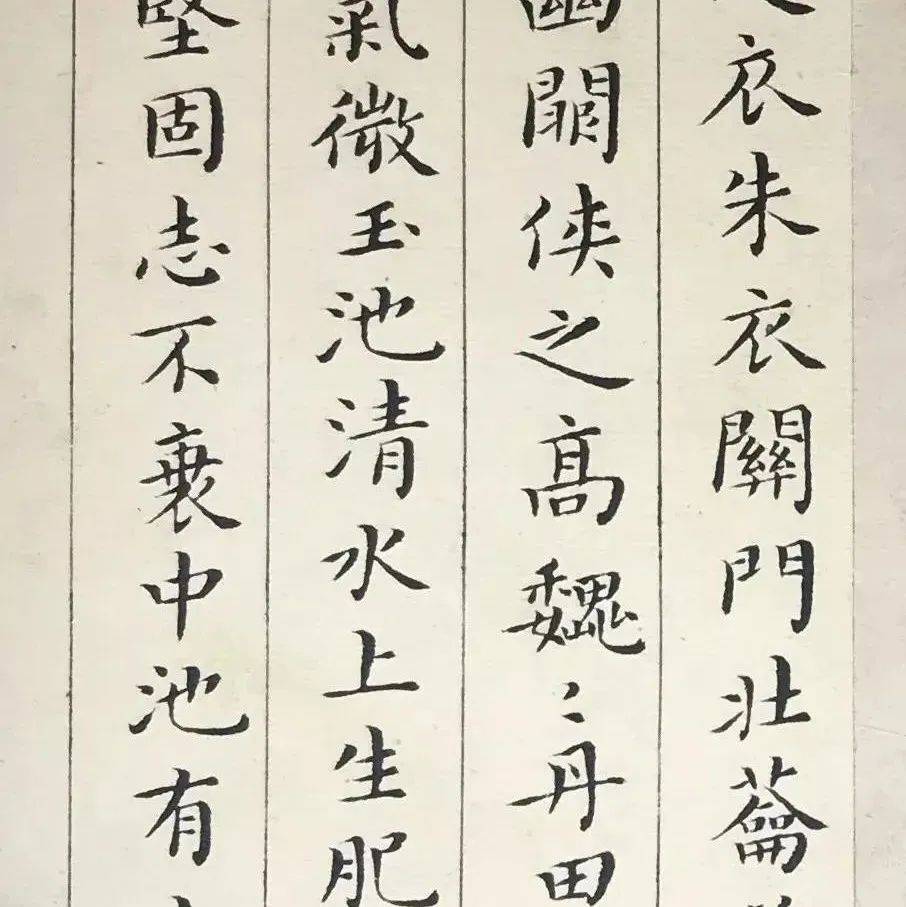 衣朱衣關門壯蘥
幽闕俠之高魏〻丹田
氣微玉池清水上生肥
堅固志不衰中池有